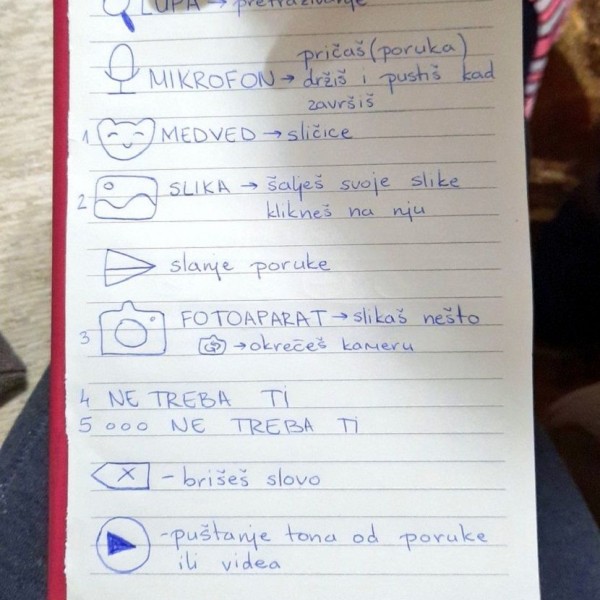 LUPA → pretraživanje
pričaš (poruka)
MIKROFON → držiš i pustiš kad
završiš
1 MEDVED → sličice
2 SLIKA → šalješ svoje slike
klikneš na nju
slanje poruke
3 FOTOAPARAT → slikaš nešto
→ okrečeš kameru
4 NE TREBA TI
5 ooo NE TREBA TI
X - brišeš slovo
- puštanje tona od poruke
ili videa